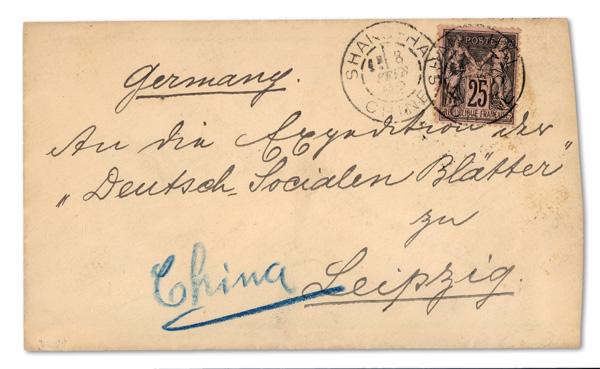 SHANG-HAI
CHINE
8
FEVR
POSTES
25
REPUBLIQUE FRANCAISE
Germany.
An die Expedition der
"Deutsch-Socialen Blätter"
zu
China Leipzig.